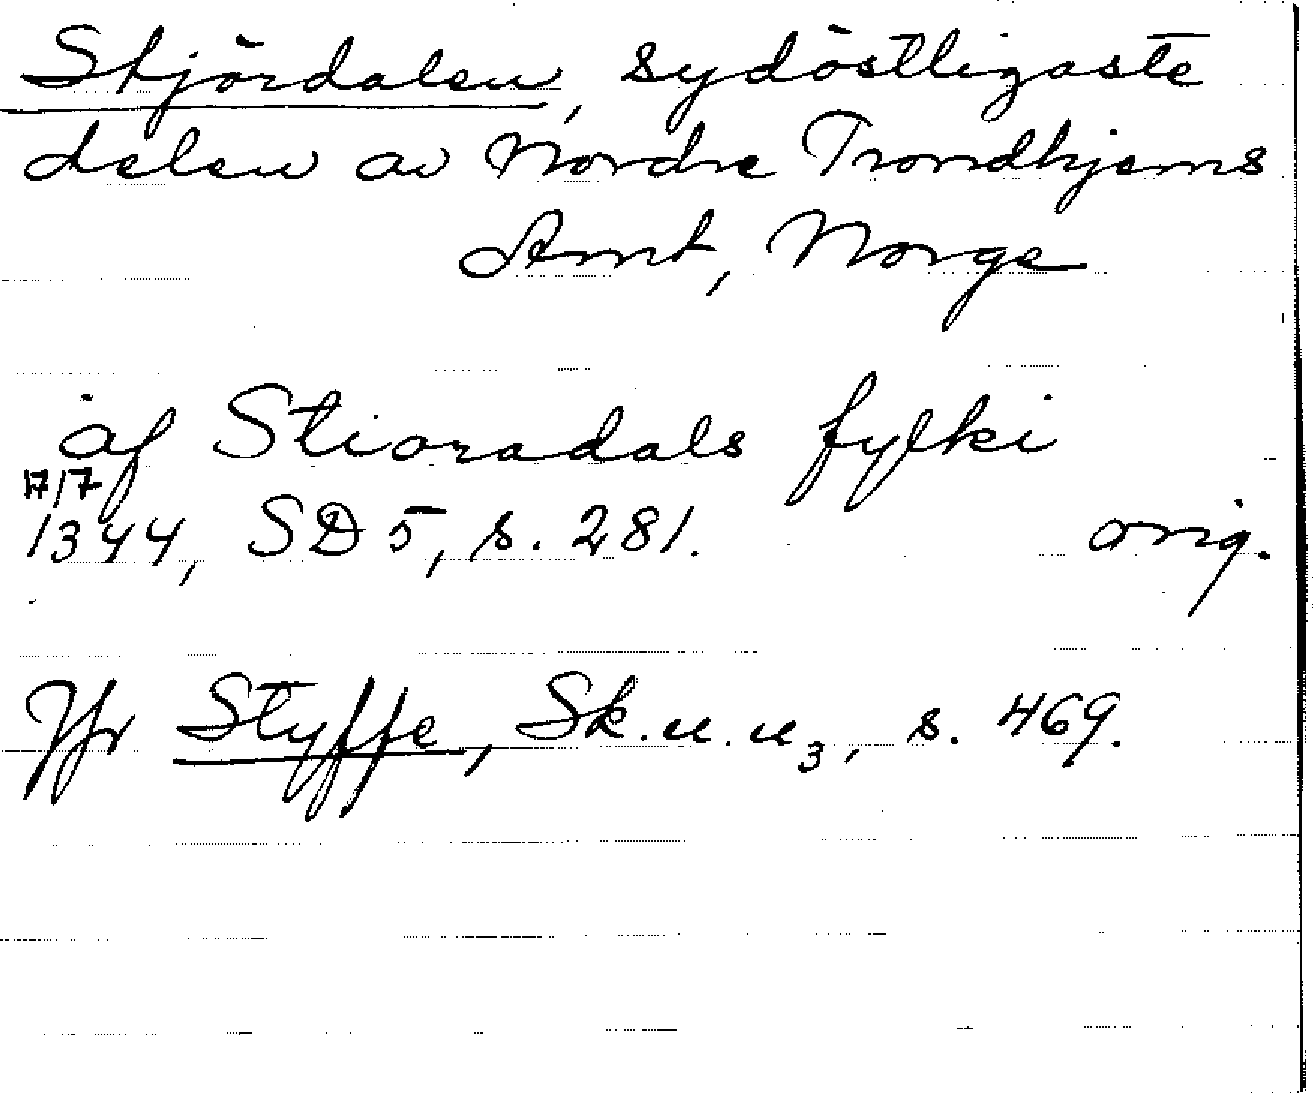 Stjördalen, sydöstligaste
delen av Nordre Trondhjems
Amt, Norge
åf Stioradals fylki
17/7
1344, SD 5, s. 281. orig.
Jfr Styffe, Sk. u. u3, s. 469.